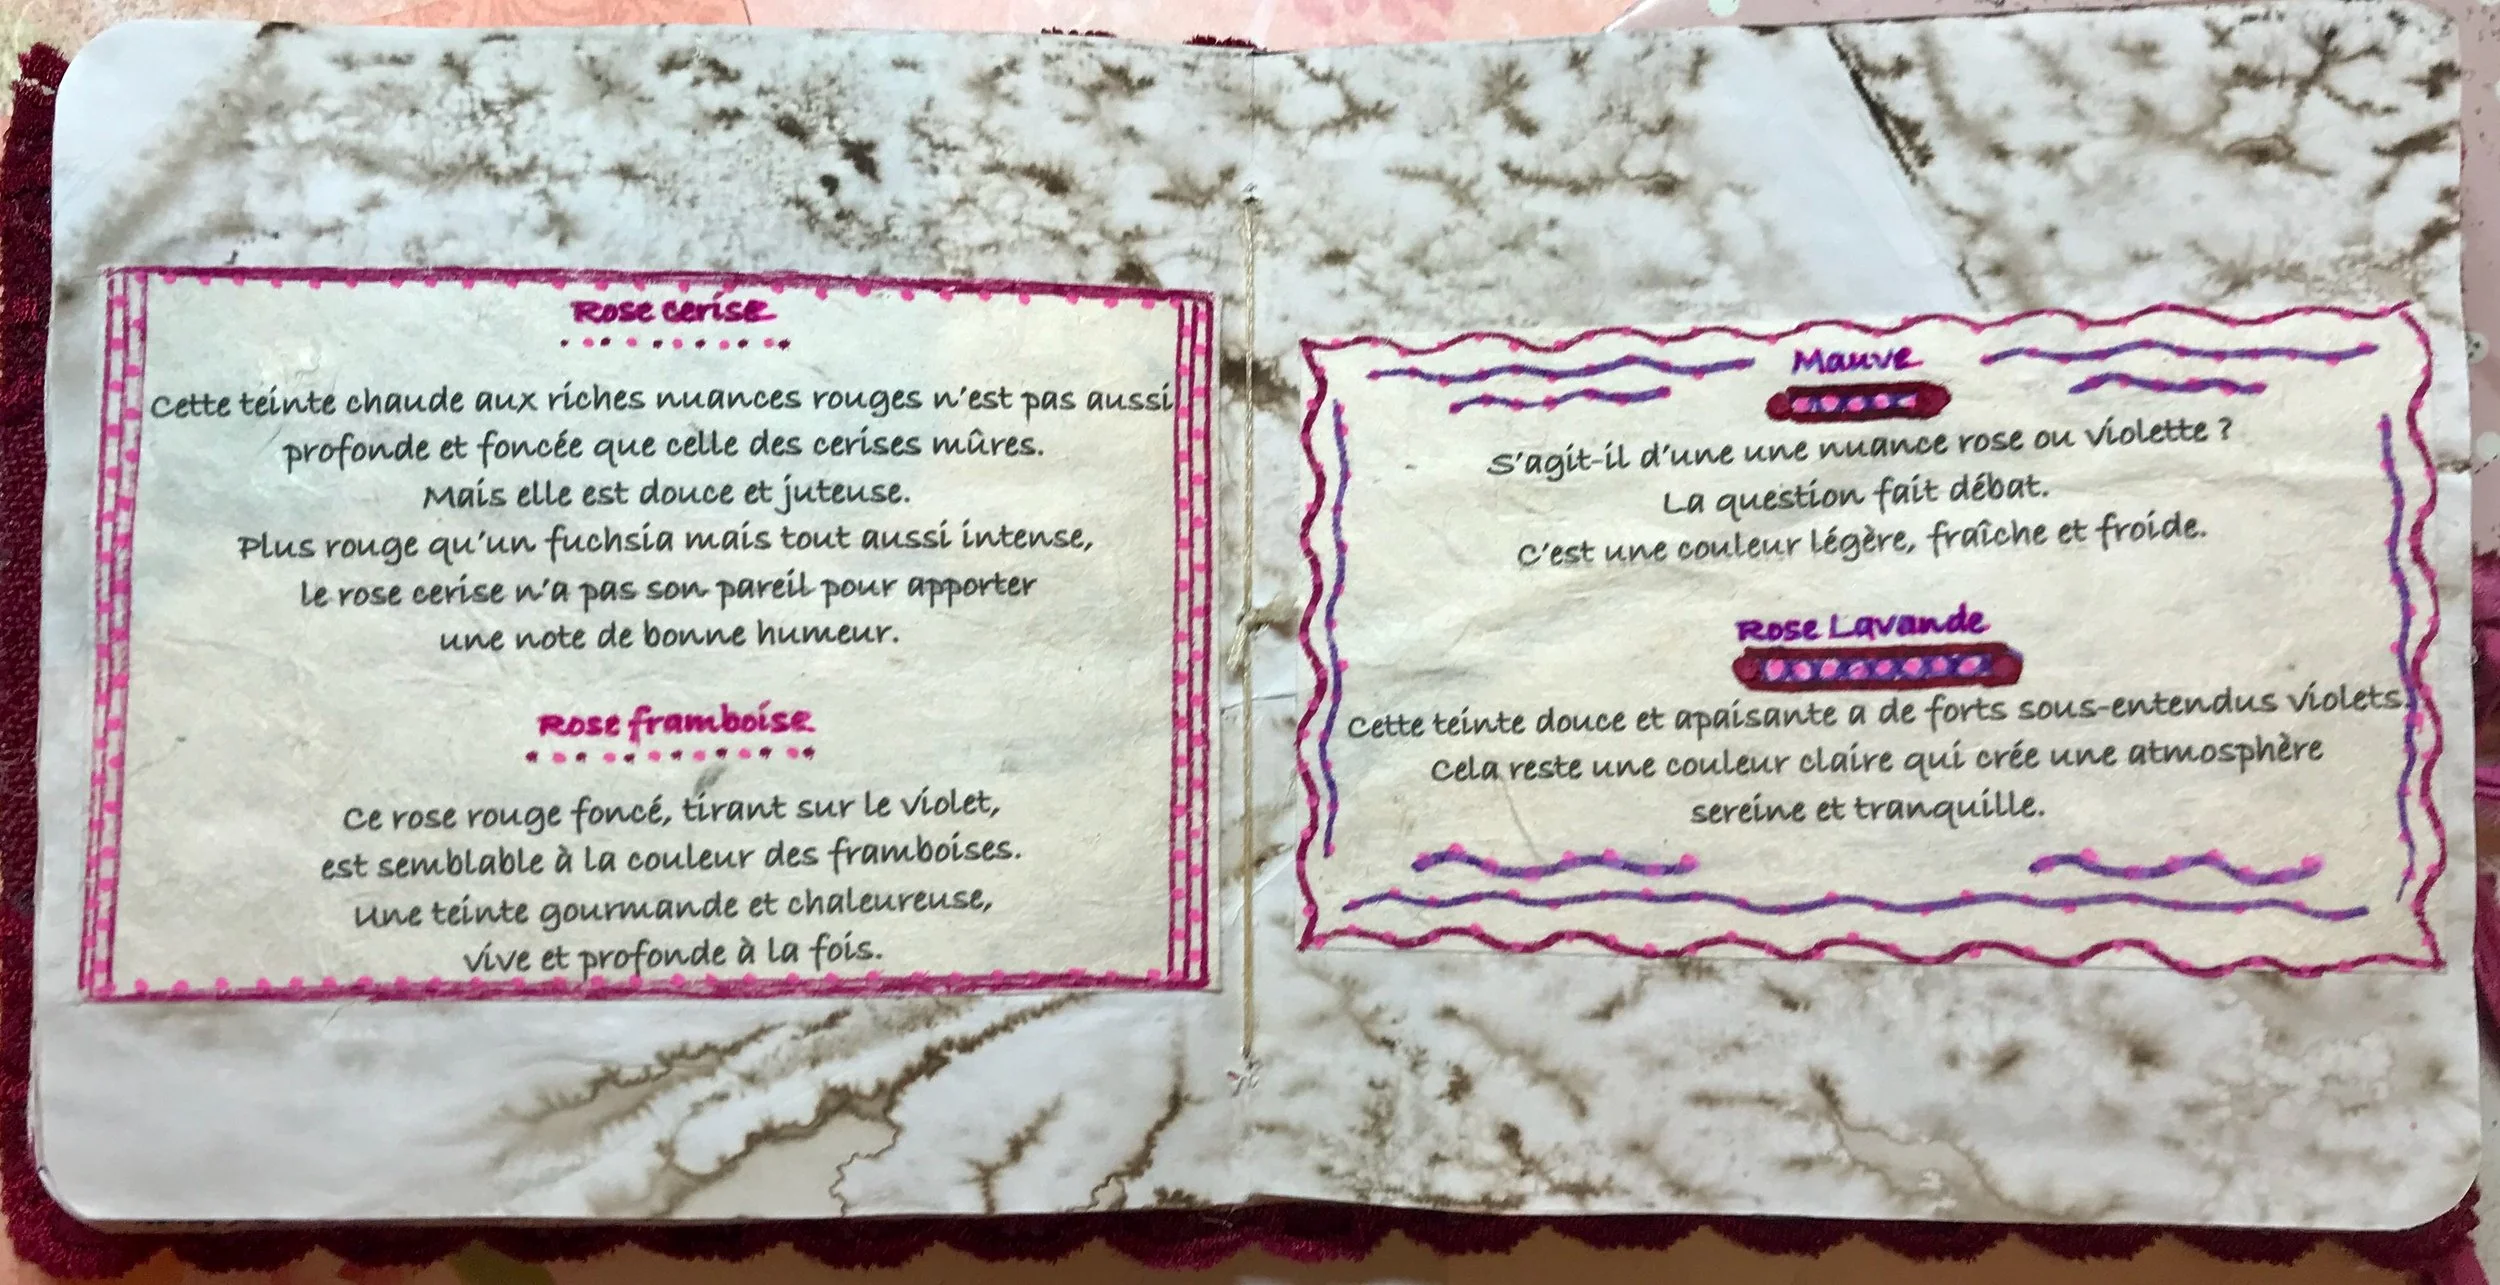 Rose cerise
Cette teinte chaude aux riches nuances rouges n'est pas aussi
profonde et foncée que celle des cerises mûres.
Mais elle est douce et juteuse.
Plus rouge qu'un fuchsia mais tout aussi intense,
le rose cerise n'a pas son pareil pour apporter
une note de bonne humeur.
Rose framboise
Ce rose rouge foncé, tirant sur le violet,
est semblable à la couleur des framboises.
Une teinte gourmande et chaleureuse,
vive et profonde à la fois.
Mauve
S'agit-il d'une une nuance rose ou violette ?
La question fait débat.
C'est une couleur légère, fraîche et froide.
Rose Lavande
Cette teinte douce et apaisante a de forts sous-entendus violets.
Cela reste une couleur claire qui crée une atmosphère
sereine et tranquille.